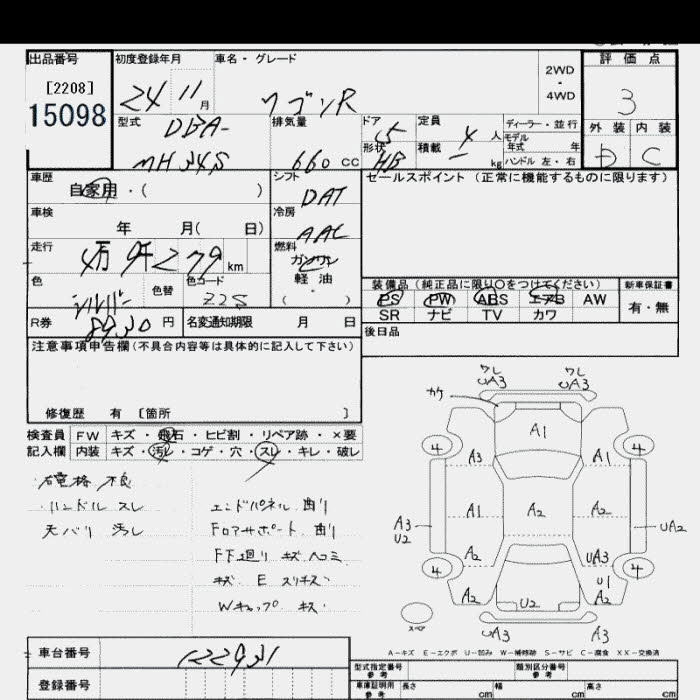 出品番号 初度登録年月 車名・グレード 評価点
[2208] 2WD
15098 24 11月 ワゴンR ・ 3
4WD
型式 DBA- 排気量 ドア 5 定員 4人 ディーラー・並行 外装 内装
モデル年式 年
MH34S 660cc 形状 HB 積載 kg ハンドル 左・右 D C
車歴 自家用・( ) シフト DAT セールスポイント (正常に機能するものに限ります)
車検 年 月( 日) 冷房 AAC
走行 4万9千279km 燃料 ガソリン
軽油
( ・ )
色 シルバー 色替 色コード Z2S
装備品 (純正品に限り○をつけてください) 新車保証書
PS PW ABS エアB AW 有・無
SR ナビ TV カワ
R券 8930円 名変通知期限 月 日 後日品
注意事項申告欄(不具合内容等は具体的に記入して下さい)
修復歴 有 [箇所 ]
検査員 FW キズ・飛石・ヒビ割・リペア跡・×要
記入欄 内装 キズ・汚レ・コゲ・穴・スレ・キレ・破レ
電格 不良
ハンドル スレ エンドパネル 曲り
天バリ 汚レ Fロアサポート 曲り
F下廻り キズ ヘコミ
キズ E スリキズ
Wキャップ キズ
ワレ ワレ
カケ UA3 UA3
A1
4 4
A3 A1
A1 A2 A2
A3 UA2
U2
A2 UA3
4 4
U1
A2 U2 A2
スペア
UA3 A3
A-キズ E-エクボ U-凹み W-補修跡 S-サビ C-腐食 XX-交換済
車台番号 122931 型式指定番号 参考 類別区分番号 参考
登録番号 車庫証明用 参考 長さ cm 幅 cm 高さ cm